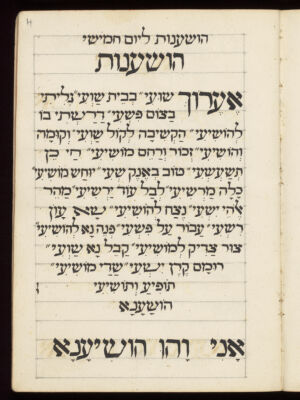 הושענות ליום חמישי
הושענות
אערוך שועי בבית שועי גליתי
בצום פשעי דרשתי בו
להושיעי הקשיבה לקול שועי וקומה
והושיעי זכור ורחם מושיעי חי כן
תשעשעי טוב באנק שעי יוחש מושיעי
כלה מרשיעי לבל עוד ירשיעי מהר
אלהי ישעי נצח להושיעי שא עון
רשעי עבור על פשעי פנה נא להושיעי
צור צדיק למושיעי קבל נא שועי
רומם קרן ישעי שדי מושיעי
תופיע ותושיעי
הושענא
אני והו הושיענא